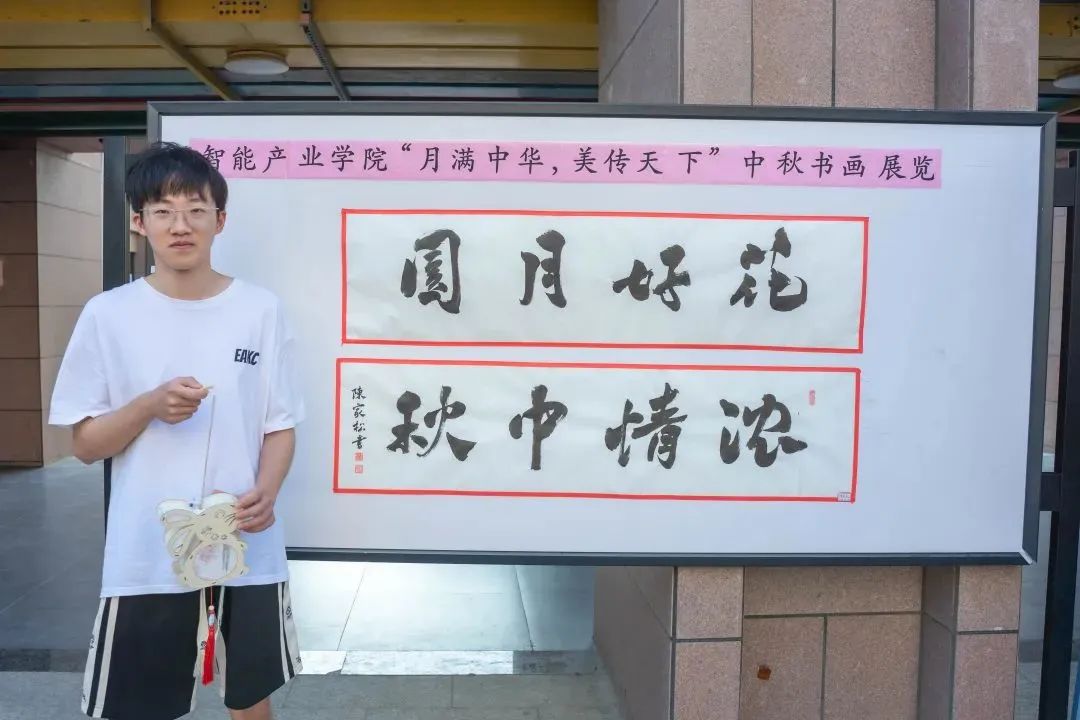 智能产业学院“月满中华,美传天下”中秋书画展览
花好月圆
浓情中秋
陳家松書
EAKC